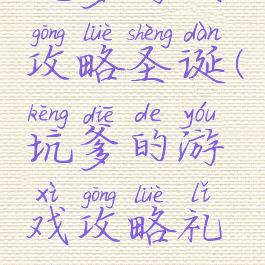 gōng lüè shèng dàn
攻略圣诞(
kēng diē de yóu
坑爹的游
xì gōng lüè lǐ
戏攻略礼